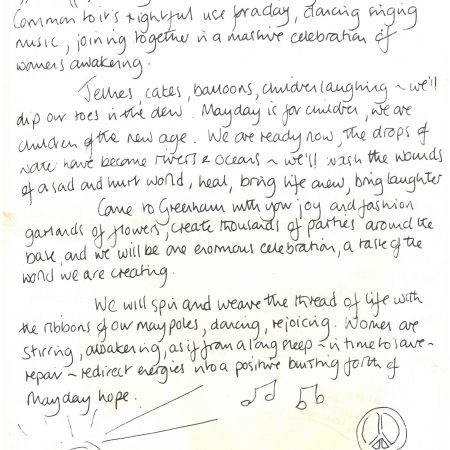 Common to it's rightful use for a day, dancing singing
music, joining together in a massive celebration of
womens awakening.
Jellies, cakes, balloons, children laughing ~ we'll
dip our toes in the dew. Mayday is for children, we are
children of the new age. We are ready now, the drops of
water have become rivers & oceans ~ we'll wash the wounds
of a sad and hurt world, heal, bring life anew, bring laughter
Come to Greenham with your joy and fashion
garlands of flowers, create thousands of parties around the
base, and we will be one enormous celebration, a taste of the
world we are creating.
We will spin and weave the thread of life with
the ribbons of our maypoles, dancing, rejoicing. Women are
stirring, awakening, as if from a long sleep ~ in time to save ~
repair ~ redirect energies into a positive bursting forth of
Mayday hope.